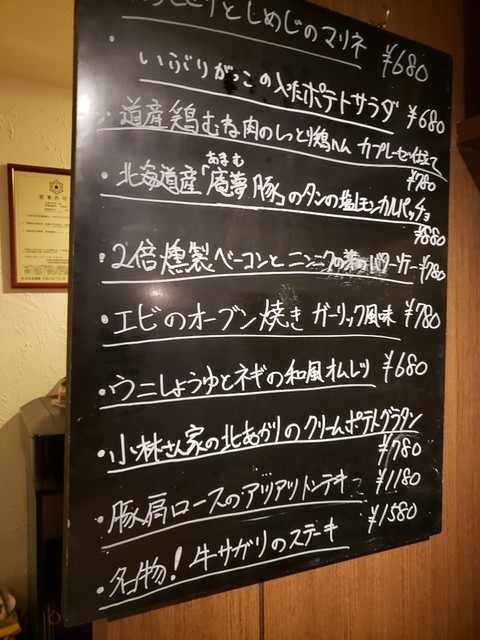 としめじのマリネ ¥680
いぶりがっこの入ったポテトサラダ ¥680
・道産鶏むね肉のしっとり鶏ハム カプレーゼ仕立て
¥780
あむ
・北海道産「庵夢豚」のタンの塩レモンカルパッチョ
¥880
・2倍燻製ベーコンとニンニクの芽のバターソテー ¥780
・エビのオーブン焼き ガーリック風味 ¥780
・ウニしょうゆとネギの和風オムレツ ¥680
・小林さん家の北あかりのクリームポテトグラタン
¥780
・豚肩ロースのアツアツトンテキ ¥1180
・名物!牛サガリのステーキ ¥1580